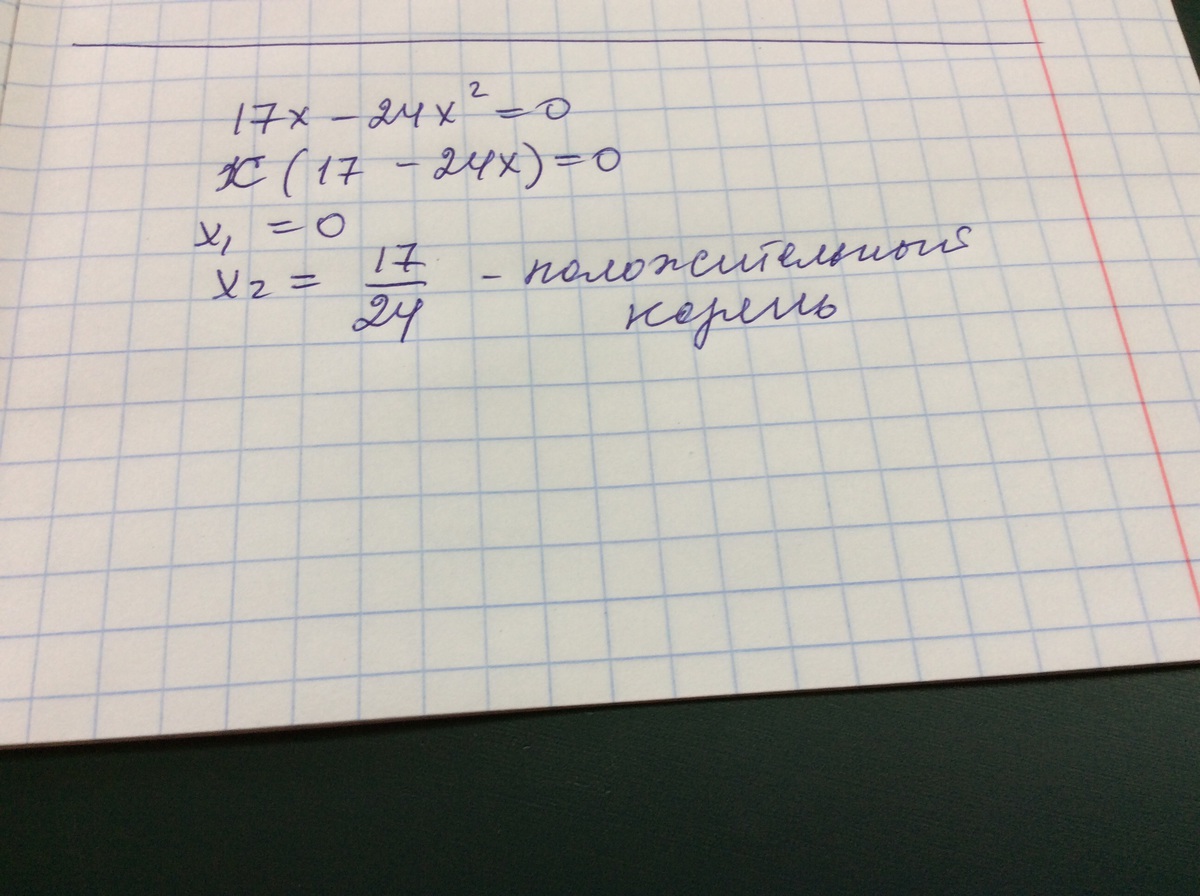 17x - 24x² = 0
x (17 - 24x) = 0
x₁ = 0
x₂ = 17/24 - положительный
корень